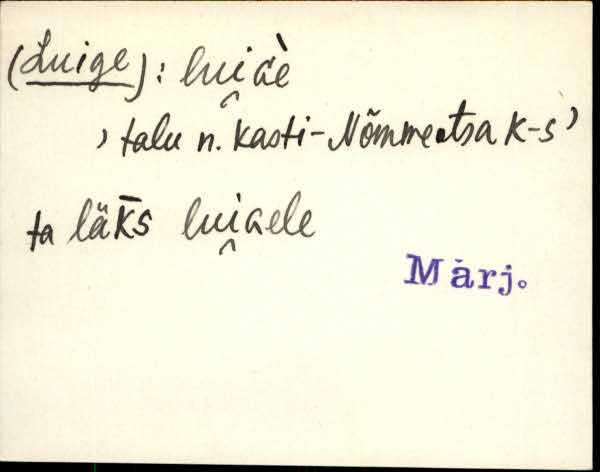 (Luige): lui̯ɢè
› talu n. Kasti-Nõmmeotsa k-s ›
ta läk̄s lui̯ɢele
Märj.